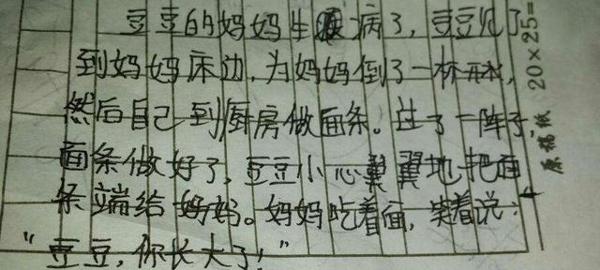 豆豆的妈妈生病了,豆豆见了
到妈妈床边,为妈妈倒了一杯开水,
然后自己到厨房做面条。过了一阵子,
面条做好了,豆豆小心翼翼地把面
条端给妈妈。妈妈吃着面,笑着说:
“豆豆,你长大了!”
20×25=
原稿纸